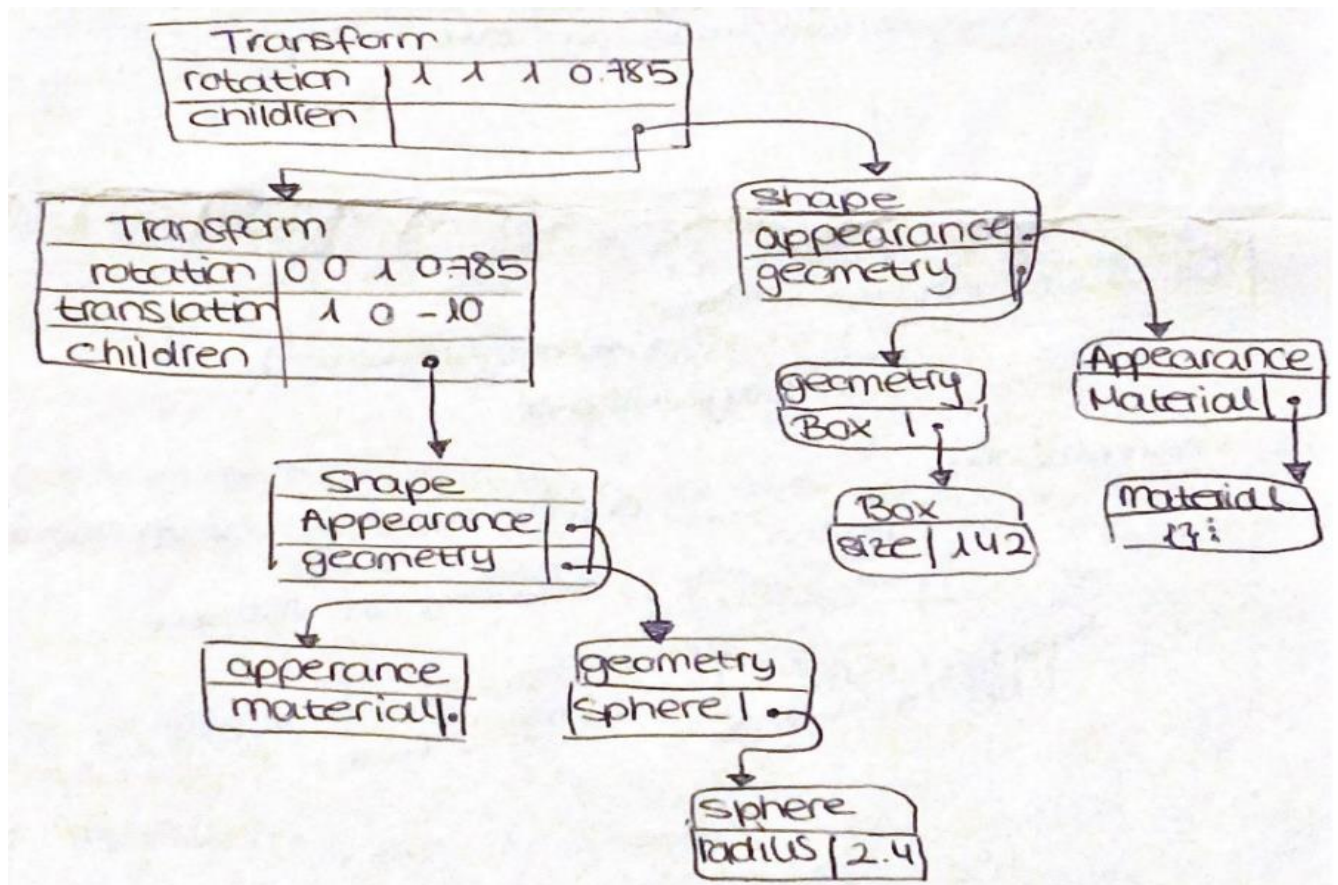 Transform
rotation 1 1 1 0.785
children
Transform
rotation 0 0 1 0.785
translation 1 0 -10
children
Shape
appearance
geometry
geometry
Box
Appearance
Material
Box
size 1 4 2
material
Shape
Appearance
geometry
apperance
material
geometry
sphere
sphere
radius 2.4